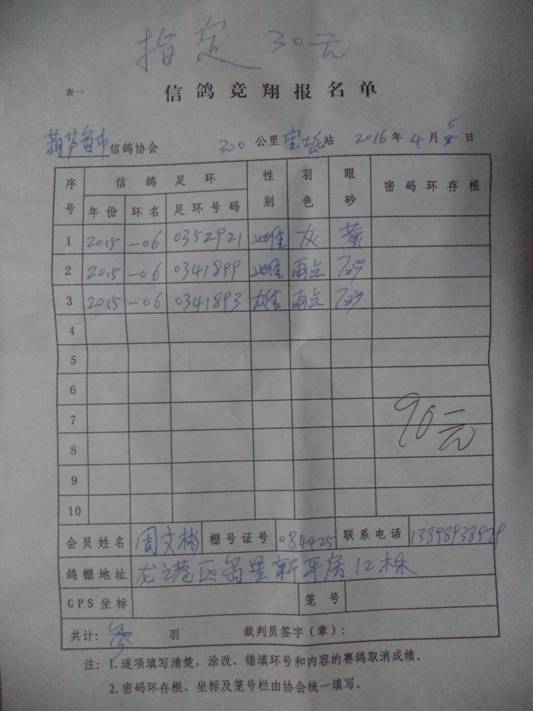 指定 30元
表一
信鸽竞翔报名单
葫芦岛市信鸽协会 300公里 站 2016年4月 日
序号 信鸽足环 性别 羽色 眼砂 密码环存根
年份 环名 足环号码
1 2015 -06 0352921 雌 灰 黄
2 2015 -06 0341899 雌 雨点 砂
3 2015 -06 0341893 雄 雨点 砂
4
5
6
7
8
9
10
90元
会员姓名 周文彬 棚号证号 084425 联系电话
鸽棚地址 龙港区 新平房12栋
GPS坐标 笼号
共计: 叁 羽 裁判员签字(章):
注: 1.逐项填写清楚,涂改、错填环号和内容的赛鸽取消成绩。
2.密码环存根、坐标及笼号栏由协会统一填写。